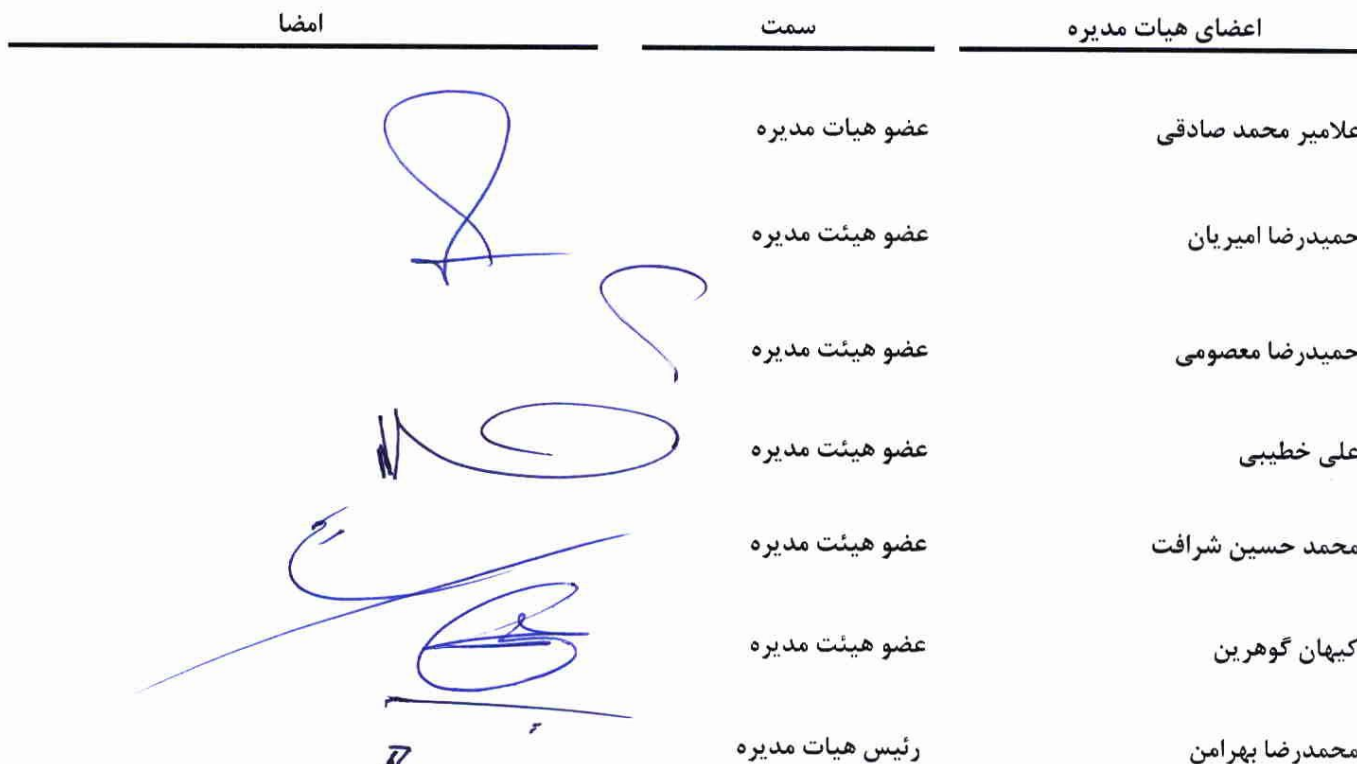 اعضای هیات مدیره سمت امضا
علامیر محمد صادقی عضو هیات مدیره
حمیدرضا امیریان عضو هیئت مدیره
حمیدرضا معصومی عضو هیئت مدیره
علی خطیبی عضو هیئت مدیره
محمد حسین شرافت عضو هیئت مدیره
کیهان گوهرین عضو هیئت مدیره
محمدرضا بهرامن رئیس هیات مدیره